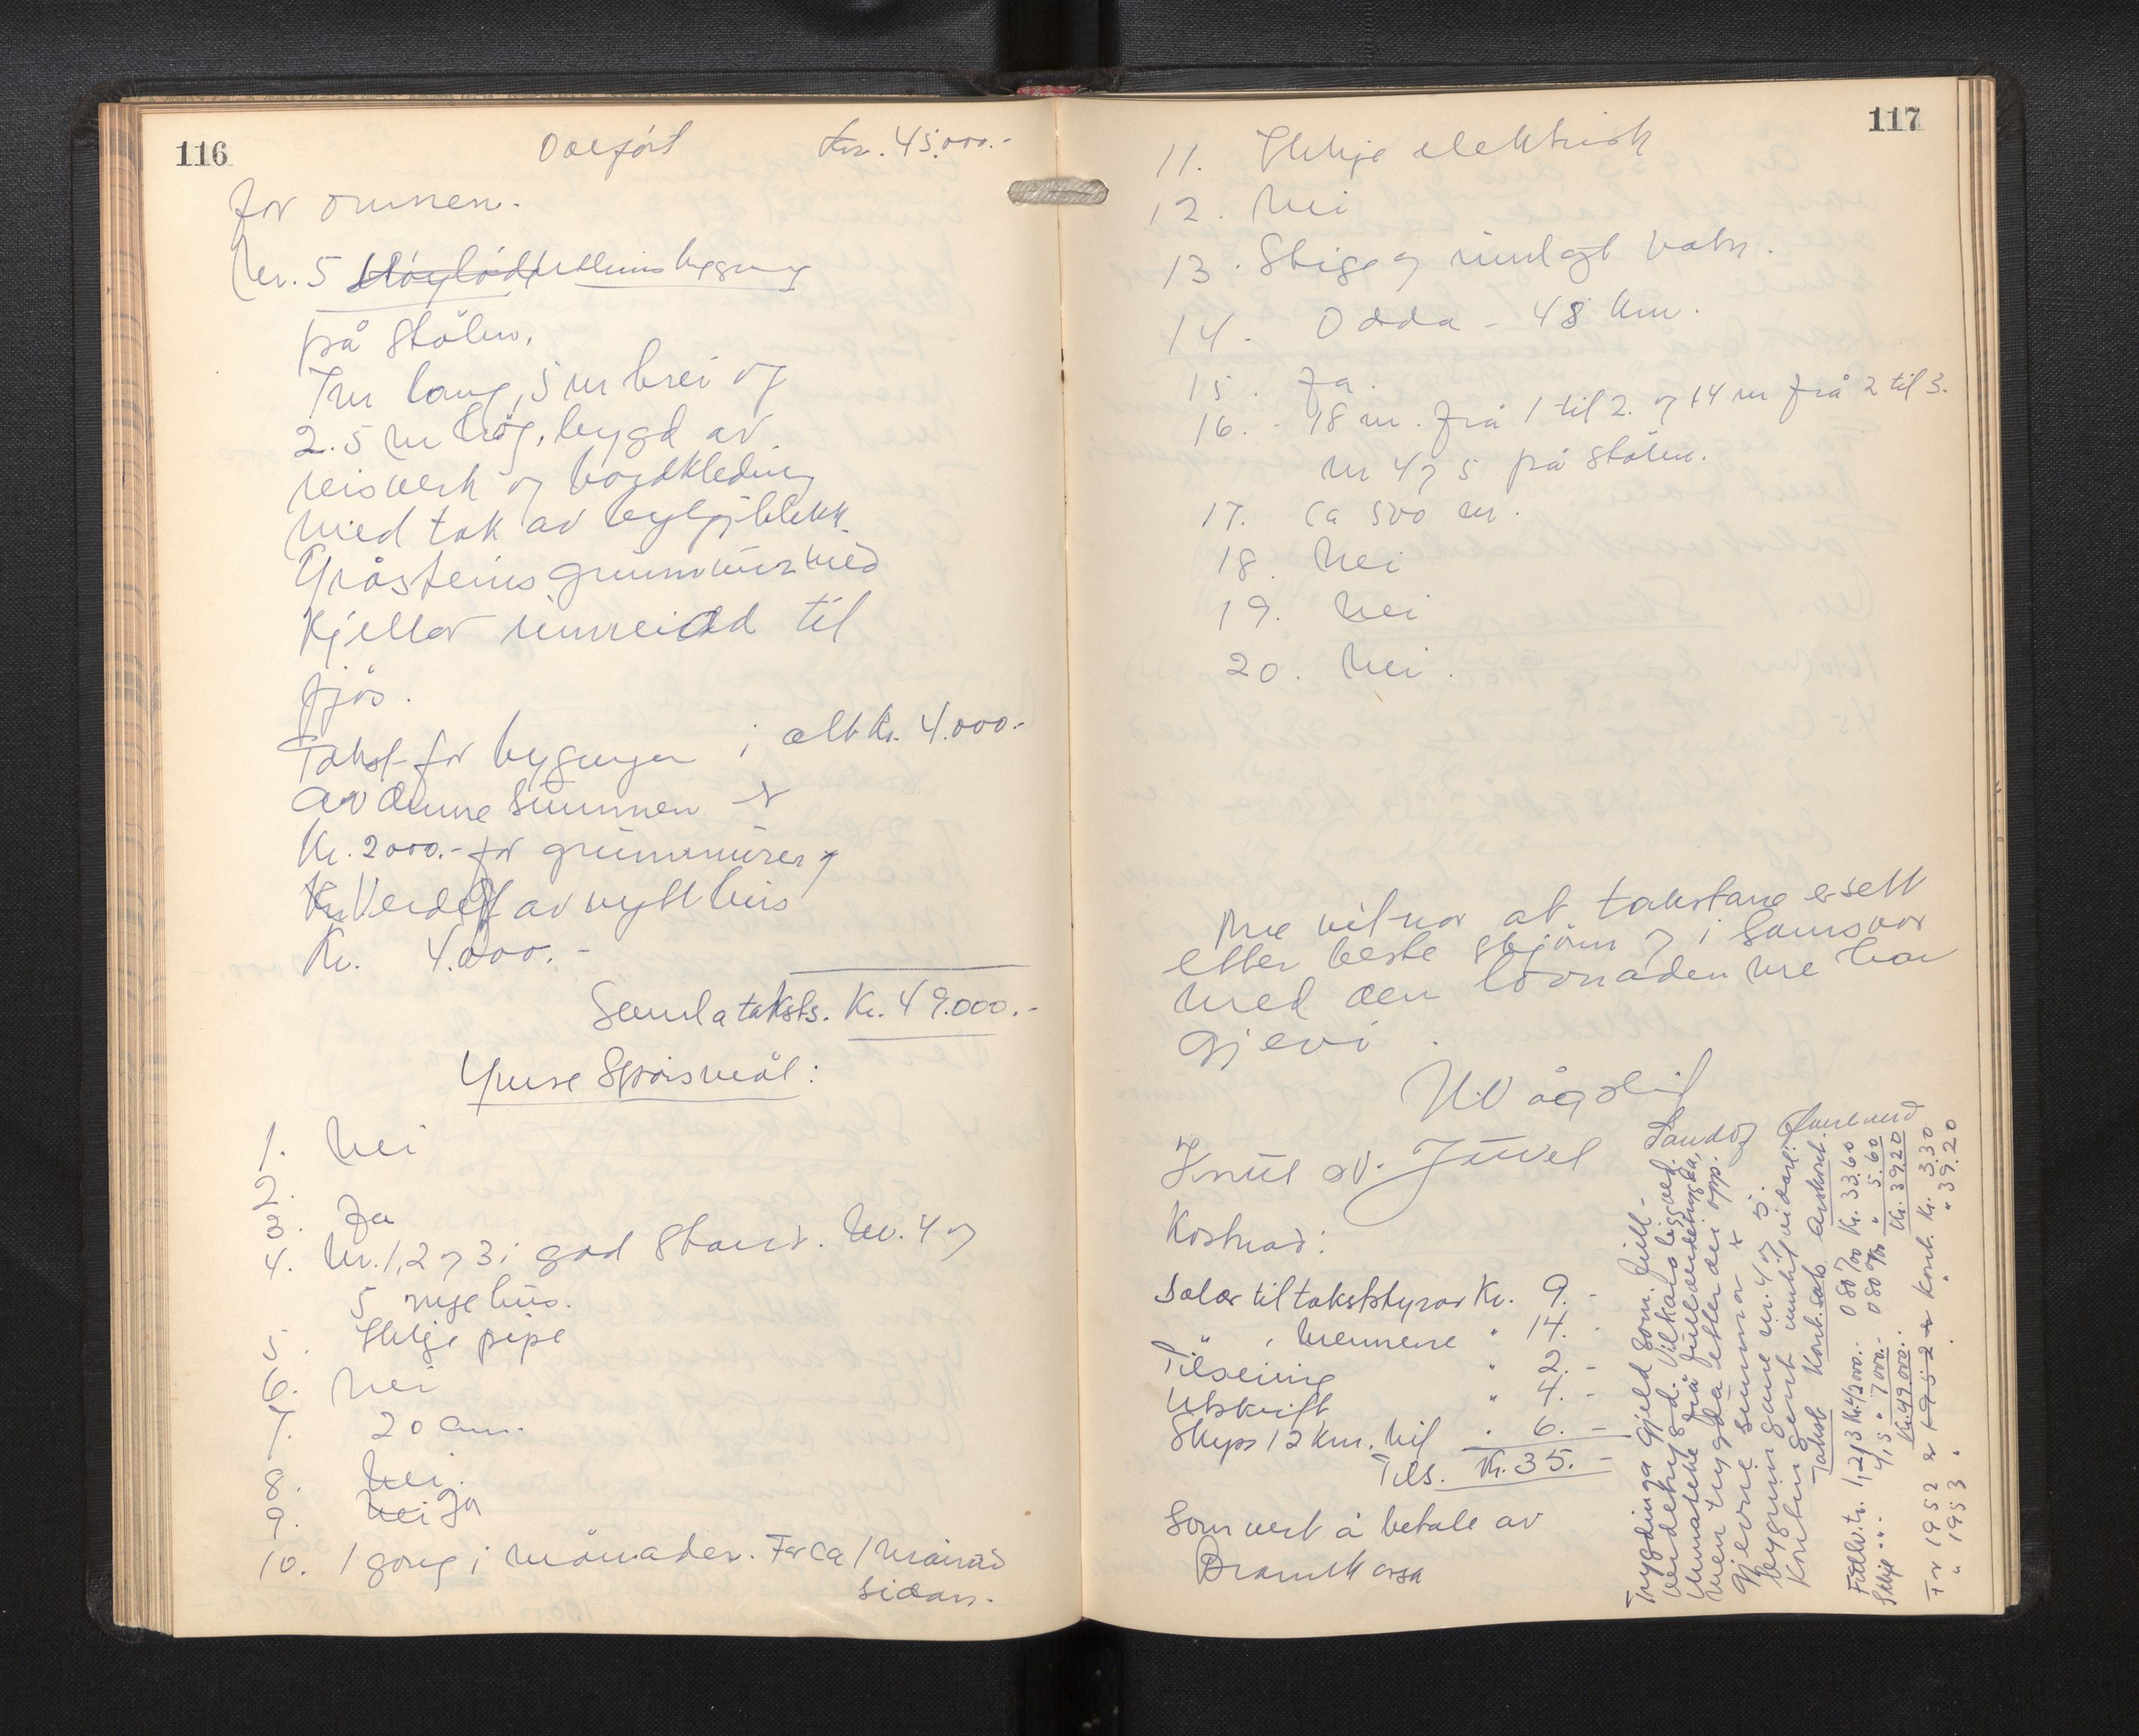 116
Overført Kr. 45.000.-
for omnen.
Nr. 5 bygning
på stølen.
7 m lang, 5 m brei og
2.5 m høg, bygd av
reisverk og bordkleding
med tak av bylgjeblekk.
Gråsteins grunnmur med
Kjellar innreidd til
fjøs.
Takst for bygningen i alt Kr. 4.000.-
av denne summen er
Kr. 2000.- for grunnmuren og
Verdet av nytt hus
Kr. 4.000.-
Samla taksts. Kr. 49.000.-
Ymse Spørsmål:
1. Nei
2.
3. Ja
4. Nr. 1, 2 og 3 i god Stand. Nr. 4 og
5 nye hus.
5. Ikkje pipe
6. Nei
7. 20 cm.
8. Nei.
9. Nei Ja
10. 1 gong i månaden. For ca 1 månad
sidan.
117
11. Ikkje elektrisk
12. Nei
13. Stige og rimlegt vatn.
14. Odda - 48 km.
15. Ja.
16. - 18 m. frå 1 til 2. og 14 m frå 2 til 3.
nr 4 og 5 på stølen.
17. Ca 500 m.
18. Nei
19. Nei
20. Nei.
Me vitnar at takstane er sett
etter beste skjønn og i samsvar
med den lovnaden me har
gjevi.
H. Vågslid
Knut O. Juvel
Kostnad:
Salær til takststyrar Kr. 9.-
" , mennene " 14.-
Tilseing " 2.-
Utskrift " 4.-
Skyss 12 km. bil " 6.-
Tils. Kr. 35.-
Som vert å betale av
Brannkassa
Trygdinga gjeld som full-
verdetrygd. Vilkåra ligg ved.
Umaskte frå fullverdetrygda,
men trygda etter dei opp.
gjevne summar er
bygningane nr. 4 og 5.
Kontingent inntil vidare:
Takst Kont.sats Årskont.
Fullv.tr. 1, 2 og 3 Kr. 42000.- 0 80 ‰ Kr. 33.60
Ikkje " " 4, 5 " 7000.- 0 80 ‰ " 5.60
Kr. 49.000.- Kr. 39.20
For 1952 er kont. Kr. 3.30
" 1953 " " " 39.20